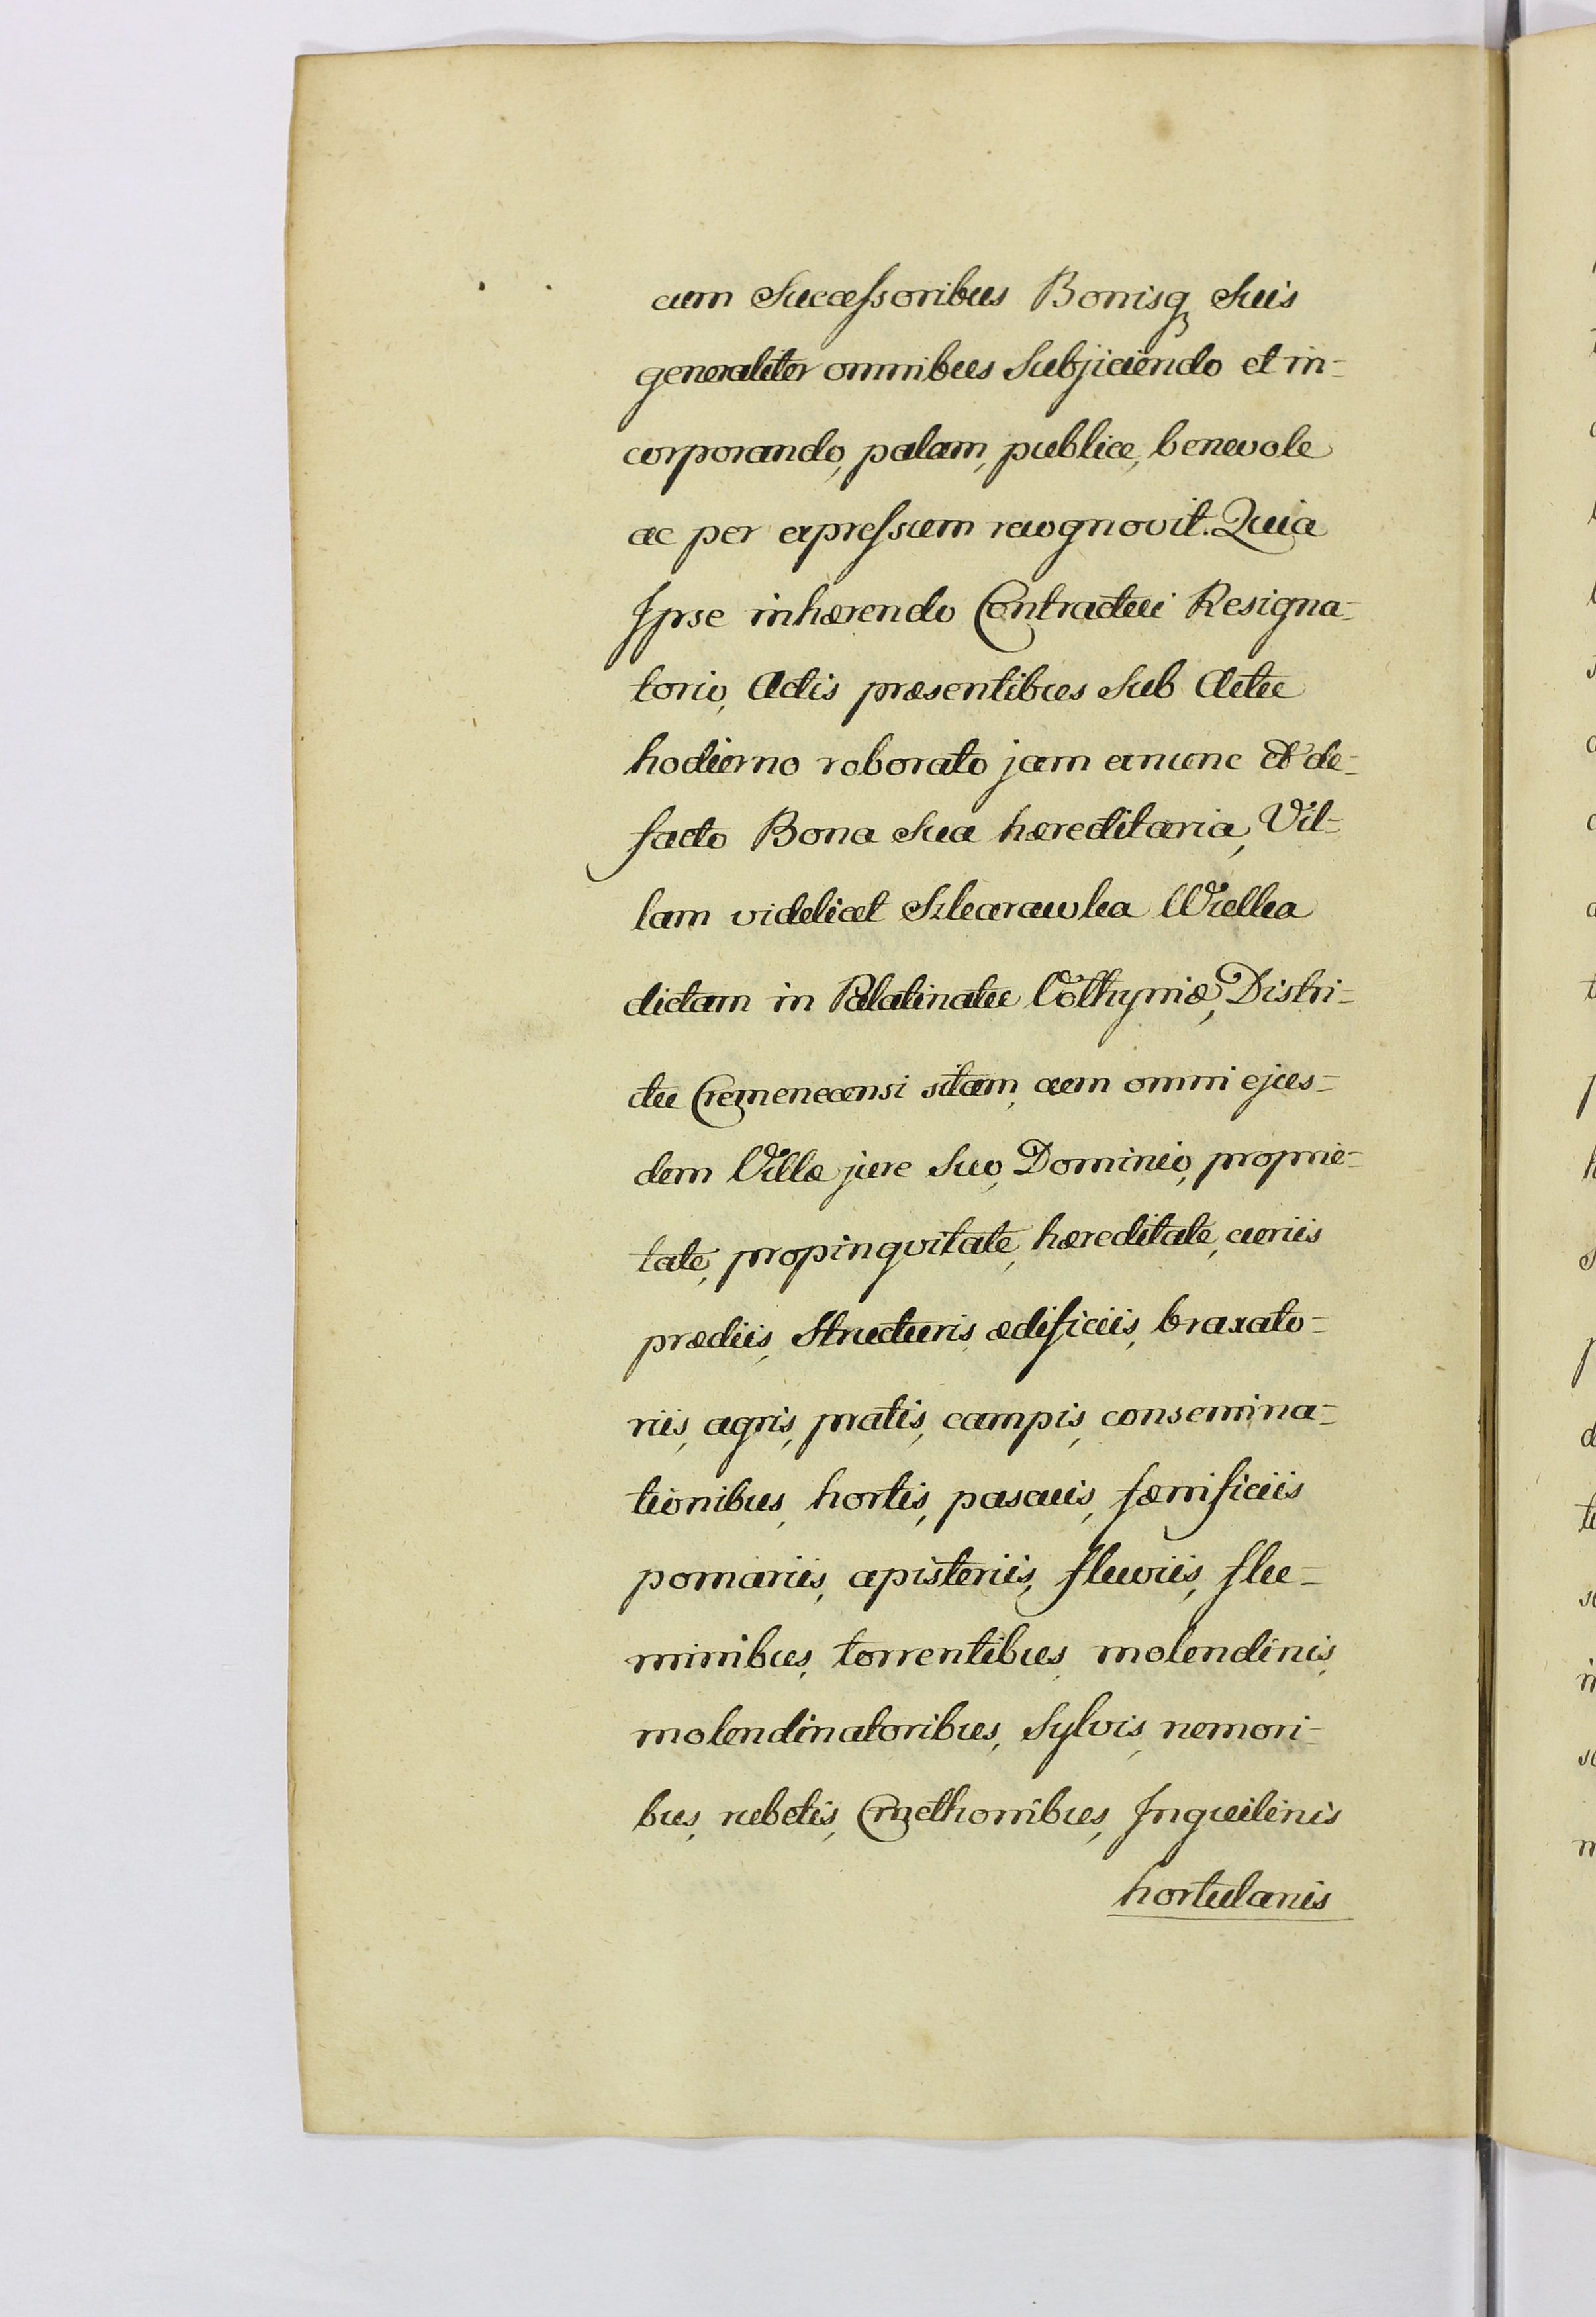 cum Successoribus Bonisq, Suis
generaliter omnibus Subjiciendo et in-
corporando, palam, publice, benevole
ac per expressum recognovit. Quia
Ipse inhærendo Contractui Resigna-
torio, Actis præsentibus Sub Actu
hodierno roborato jam exnunc et de-
facto Bona Sua hæreditaria, Vil-
lam videlicet Szkarawka Wielka
dictam in Palatinatu Volhyniæ, Distri-
ctu Cremenecensi sitam, cum omni ejus-
dem Villæ jure Suo, Dominio, proprie-
tate, propinqvitate, hæreditate, curiis
prædiis, Structuris, ædificiis, braxato-
riis, agris, pratis, campis, consemina-
tionibus, hortis, pascuis, fænificiis
pomariis, apisteriis, fluviis, flu-
minibus, torrentibus, molendinis,
molendinatoribus, Sylvis, nemori-
bus, rubetis, Cmethonibus, Inquilinis
hortulanis